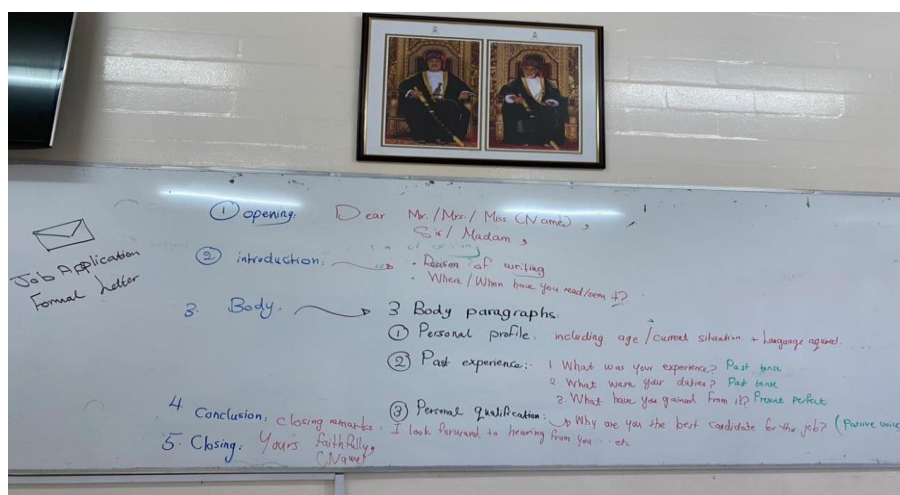 Job Application
Formal Letter
① opening: Dear Mr. / Mrs. / Miss (Name),
Sir / Madam,
② introduction:
• Reason of writing
• Where / When have you read/seen it?
3. Body:
3 Body paragraphs:
① Personal profile: including age / current situation + Language
② Past experience: 1 What was your experience? Past tense
2. What were your duties? Past tense
3. What have you gained from it? Present perfect
③ Personal qualification: Why are you the best candidate for the job? (Passive voice
4 Conclusion: closing remarks. I look forward to hearing from you... etc
5. Closing: Yours faithfully,
(Name)